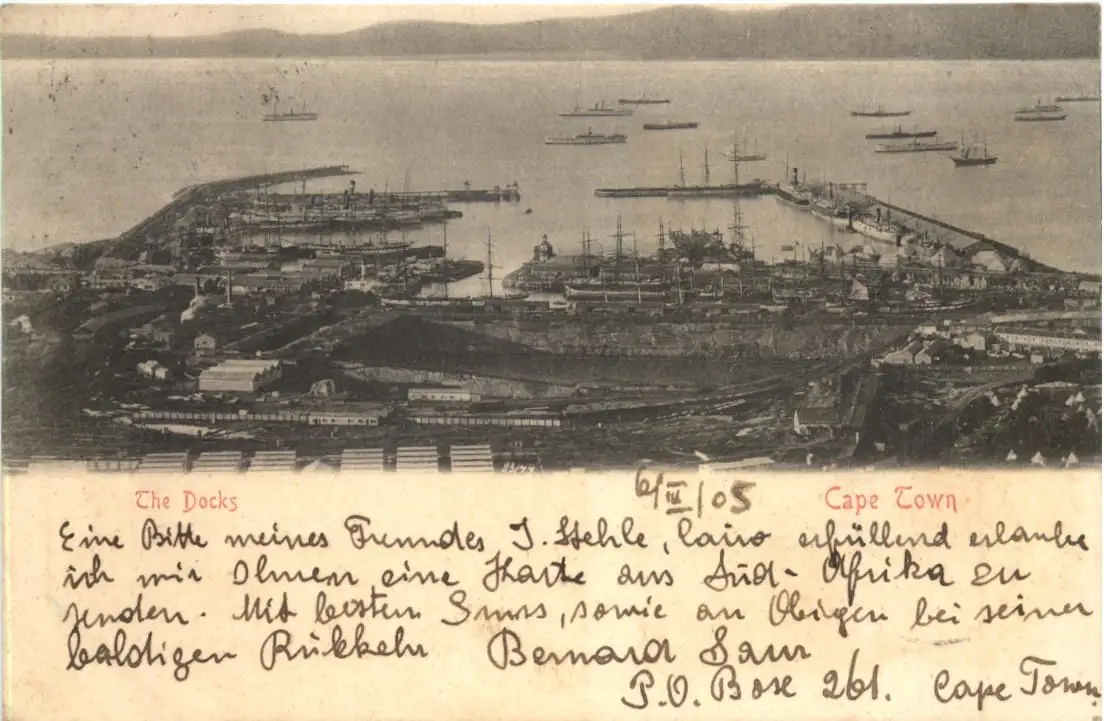 83144
The Docks
6/IV/05
Cape Town
Eine Bitte meines Freundes J. Stehle, Cairo erfüllend erlaube
ich mir Ihnen eine Karte aus Süd-Afrika zu
senden. Mit besten Gruss, sowie an Obigen bei seiner
baldigen Rükkehr Bernard Saur
P.O. Box 261. Cape Town